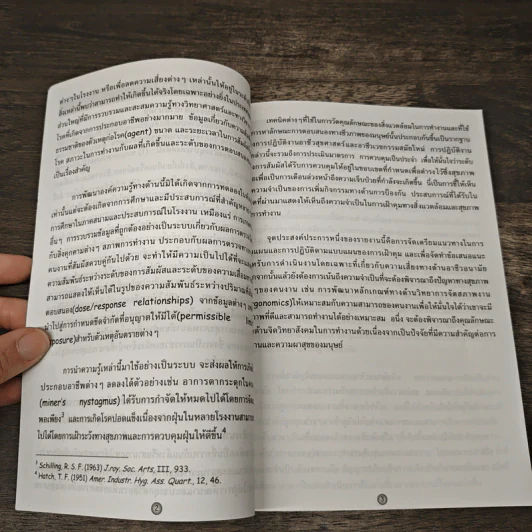 ต่างๆในโรงงาน หรือเพื่อลดความเสี่ยงต่างๆ เหล่านั้นให้อยู่ใน
สิ่งเหล่านี้พบว่าสามารถทำให้เกิดขึ้นได้จริงโดยเฉพาะอย่างยิ่งใน
ส่วนใหญ่ที่มีการรวบรวมและสะสมความรู้ทางวิทยาศาสตร์และทาง
โรคที่เกิดจากการประกอบอาชีพอย่างมากมาย ข้อมูลเกี่ยวกับความ
ธรรมชาติของตัวเหตุก่อโรค(agent) ขนาด และระยะเวลาในการ
โรค สภาวะในการทำงานกับผลที่เกิดขึ้นและระดับของการตอบสนอง
เป็นเรื่องสำคัญ
การพัฒนาองค์ความรู้ทางด้านนี้มิได้เกิดจากการทดลองใน
เท่านั้นแต่จะต้องเกิดจากการศึกษาและมีประสบการณ์ที่สำคัญ
การศึกษาในภาคสนามและประสบการณ์ในโรงงาน เหมือนแร่ การ
อื่นๆ การรวบรวมข้อมูลที่ถูกต้องอย่างเป็นระบบเกี่ยวกับผลการ
กับสิ่งคุกคามต่างๆ สภาพการทำงาน ประกอบกับผลการตรวจทาง
คนงานที่สัมผัสควบคู่กันไปด้วย จะทำให้มีความเป็นไปได้ที่จะ
ความสัมพันธ์ระหว่างระดับของการสัมผัสและระดับของความเสี่ยง
สามารถแสดงให้เห็นได้ในรูปของความสัมพันธ์ระหว่างปริมาณ
ตอบสนอง(dose/response relationships) จากข้อมูลต่างๆ
นำไปสู่การกำหนดขีดจำกัดที่อนุญาตให้มีได้(permissible
exposure)สำหรับตัวเหตุอันตรายต่างๆ
การนำความรู้เหล่านี้มาใช้อย่างเป็นระบบ จะส่งผลให้การ
ประกอบอาชีพต่างๆ ลดลงได้ตัวอย่างเช่น อาการตากระตุก
(miner's nystagmus) ได้รับการกำจัดให้หมดไปได้โดยการ
พอเพียง³ และการเกิดโรคปอดแข็งเนื่องจากฝุ่นในหลายโรงงานสามารถ
ไปได้โดยการเฝ้าระวังทางสุขภาพและการควบคุมฝุ่นให้ดีขึ้น⁴
³ Schilling, R. S. F. (1963) J.roy. Soc. Arts, III, 933.
⁴ Hatch, T. F. (1951) Amer. Industr. Hyg. Ass. Quart., 12, 46.
2
เทคนิคต่างๆที่ใช้ในการวัดคุณลักษณะของสิ่งแวดล้อมในการทำงานและที่ใช้
การหาลักษณะการตอบสนองทางชีวภาพของมนุษย์นั้นประกอบกันขึ้นเป็นรากฐาน
การปฏิบัติงานอาชีวสุขศาสตร์และอาชีวเวชกรรมสมัยใหม่ การปฏิบัติงาน
กล่าวนี้จะรวมถึงการประเมินมาตรการ การควบคุมเป็นประจำ เพื่อให้มั่นใจว่าระดับ
การสัมผัสได้รับการควบคุมให้อยู่ในขอบเขตที่กำหนดเพื่อดำรงไว้ซึ่งสุขภาพ
เพื่อเป็นการเตือนล่วงหน้าถึงความเจ็บป่วยที่กำลังจะเกิดขึ้น นี่เป็นการชี้ให้เห็น
ความจำเป็นของการเพิ่มกิจกรรมทางด้านการป้องกัน ประสบการณ์ที่ได้รับใน
ที่ผ่านมาแสดงให้เห็นถึงความจำเป็นในการเฝ้าคุมทางสิ่งแวดล้อมและสุขภาพ
การทำงาน
จุดประสงค์ประการหนึ่งของรายงานนี้คือการจัดเตรียมแนวทางในการ
แผนและการปฏิบัติตามแบบแผนของการเฝ้าคุม และเพื่อจัดทำข้อเสนอแนะ
รับการดำเนินงานโดยเฉพาะที่เกี่ยวกับความเสี่ยงทางด้านอาชีวอนามัย
จากนั้นแล้วยังต้องการเน้นถึงความจำเป็นที่จะต้องพิจารณาถึงปัญหาทางสุขภาพ
ๆของคนงาน เช่น การพัฒนาหลักเกณฑ์ทางด้านวิทยาการจัดสภาพงาน
(ergonomics)ให้เหมาะสมกับความสามารถของคนงานเพื่อให้มั่นใจได้ว่าเขาจะมี
ภาพที่ดีและสามารถทำงานได้อย่างเหมาะสม อนึ่ง จะต้องพิจารณาถึงคุณลักษณะ
ด้านจิตวิทยาสังคมในการทำงานด้วยเนื่องจากเป็นปัจจัยที่มีความสำคัญต่อการ
านและความผาสุขของมนุษย์
3